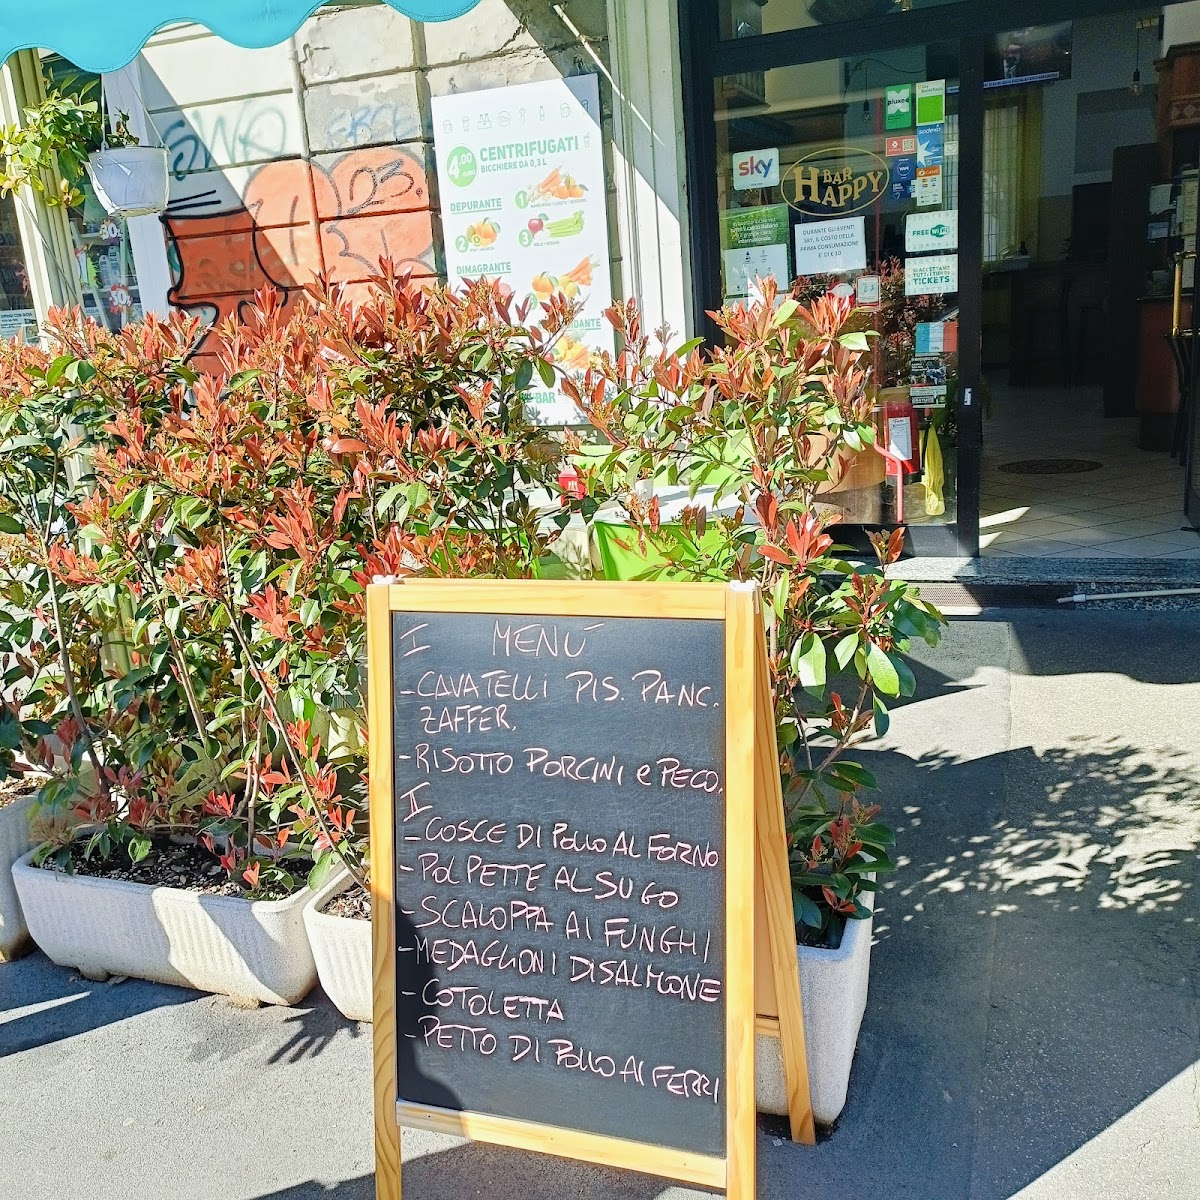 4.00
CENTRIFUGATI
BICCHIERE DA 0,3 L
DEPURANTE
1
2
3
DIMAGRANTE
BAR
sky
BAR
HAPPY
pluxee
sodexo
DURANTE GLI EVENTI
SKY, IL COSTO DELLA
PRIMA CONSUMAZIONE
FREE WiFi
TICKETS
I MENÚ
- CAVATELLI PIS. PANC.
ZAFFER.
- RISOTTO PORCINI e PECO.
II
- COSCE DI POLLO AL FORNO
- POLPETTE AL SUGO
- SCALOPPA AI FUNGHI
- MEDAGLIONI DI SALMONE
- COTOLETTA
- PETTO DI POLLO AI FERRI